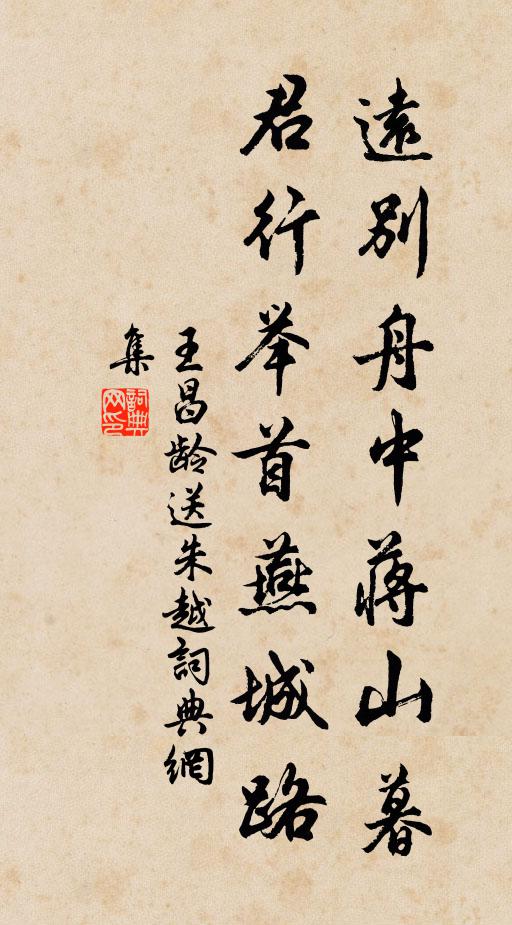 遠别舟中蔣山暮
君行举首燕城路
王昌龄送朱越詞典網
集
詞典
网印